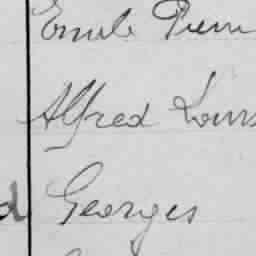 Emile Pierr
Alfred Louis
d Georges